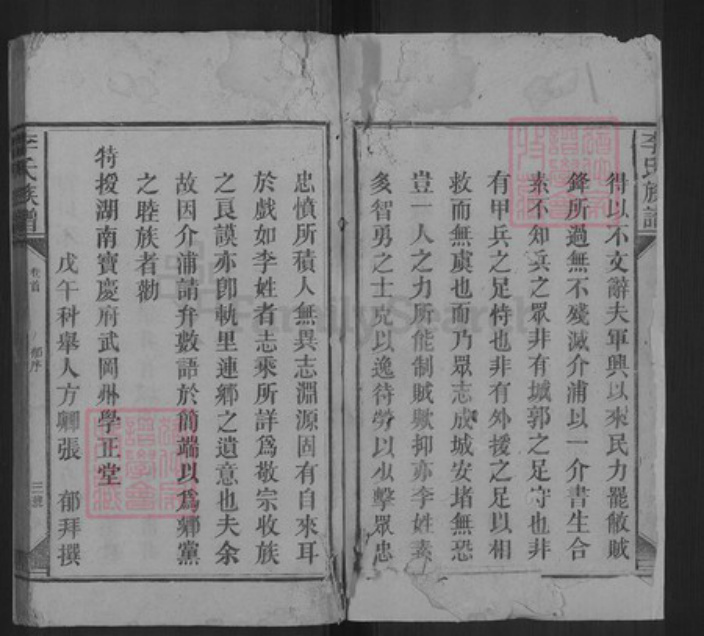 李氏族譜
得以不文辭夫軍興以來民力罷敝賊
鋒所過無不殘滅介浦以一介書生合
素不知兵之眾非有城郭之足守也非
有甲兵之足恃也非有外援之足以相
救而無虞也而乃眾志成城安堵無恐
豈一人之力所能制賊歟抑亦李姓素
多智勇之士克以逸待勞以少擊眾忠
忠憤所積人無異志淵源固有自來耳
於戲如李姓者志乘所詳為敬宗收族
之良謨亦卽軌里連鄉之遺意也夫余
故因介浦請弁數語於簡端以為鄉黨
之睦族者勸
特授湖南寶慶府武岡州學正堂
戊午科舉人方卿張 郁拜撰
李氏族譜
卷首
郁序
三